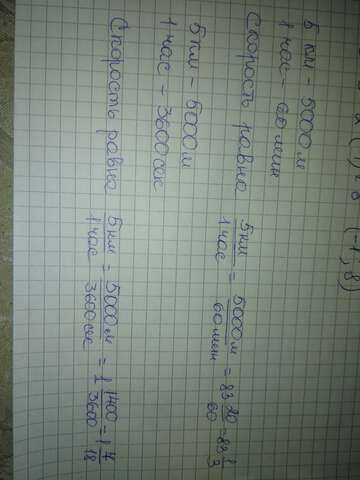 (-1,8)
5 км - 5000 м
1 час - 60 мин
Скорость равна 5км/1час = 5000м/60мин = 83 20/60 = 83 1/3
5км - 5000м
1 час - 3600сек
Скорость равна 5км/1час = 5000м/3600сек = 1 1400/3600 = 1 7/18